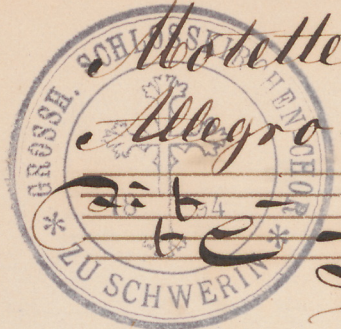 Motette
Allegro
GROSSH. SCHLOSSKIRCHENCHOR
ZU SCHWERIN